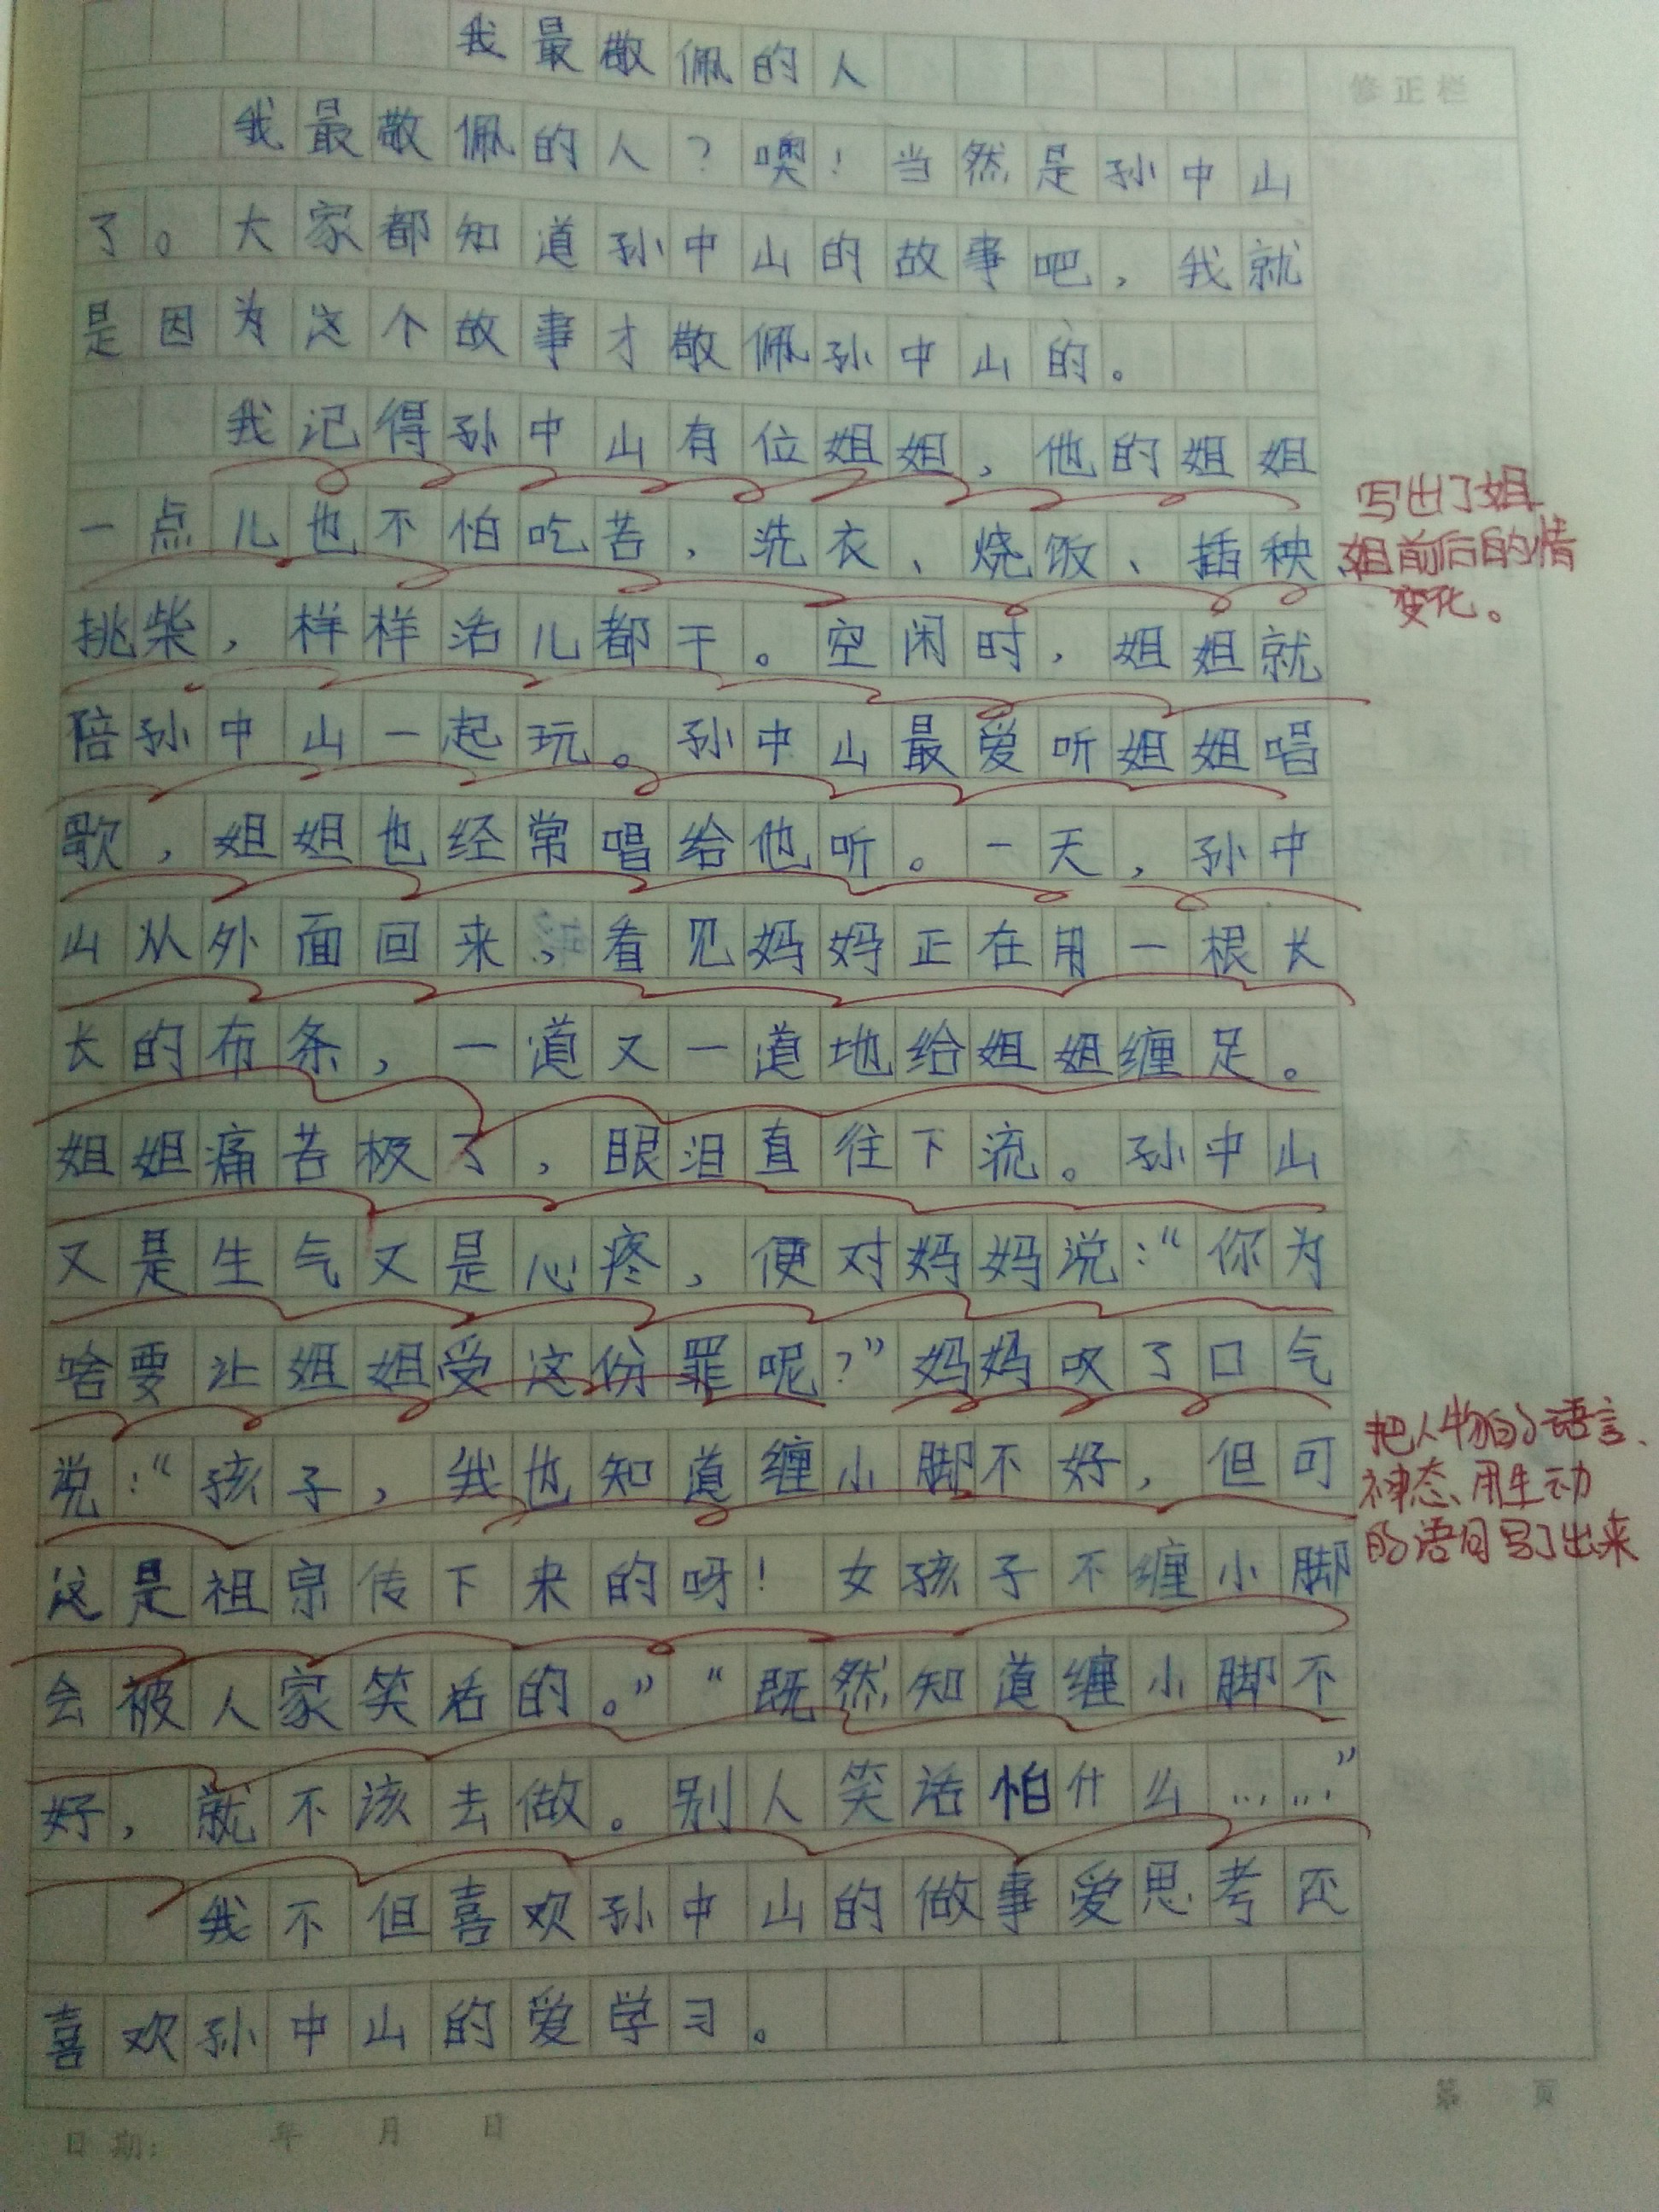 我最敬佩的人
修正栏
我最敬佩的人？噢！当然是孙中山
了。大家都知道孙中山的故事吧，我就
是因为这个故事才敬佩孙中山的。
我记得孙中山有位姐姐，他的姐姐
一点儿也不怕吃苦，洗衣、烧饭、插秧
挑柴，样样活儿都干。空闲时，姐姐就
陪孙中山一起玩。孙中山最爱听姐姐唱
歌，姐姐也经常唱给他听。一天，孙中
山从外面回来，看见妈妈正在用一根长
长的布条，一道又一道地给姐姐缠足。
姐姐痛苦极了，眼泪直往下流。孙中山
又是生气又是心疼，便对妈妈说：“你为
啥要让姐姐受这份罪呢？”妈妈叹了口气
说：“孩子，我也知道缠小脚不好，但可
这是祖宗传下来的呀！女孩子不缠小脚
会被人家笑话的。”“既然知道缠小脚不
好，就不该去做。别人笑话怕什么……”
我不但喜欢孙中山的做事爱思考还
喜欢孙中山的爱学习。
写出了姐
姐前后的情
变化。
把人物的语言、
神态、用生动
的语句写了出来
日期： 年 月 日
第 页